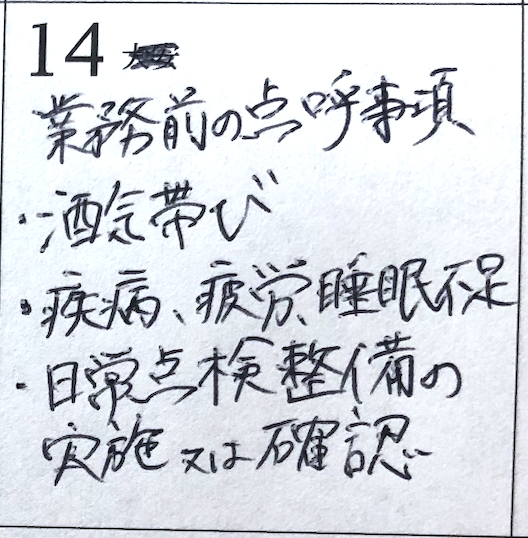 14
業務前の点呼事項
・酒気帯び
・疾病、疲労、睡眠不足
・日常点検整備の
実施又は確認